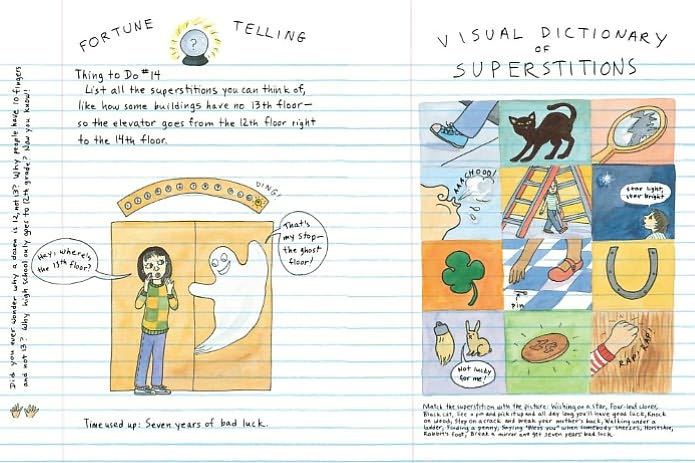 FORTUNE TELLING
?
Thing to Do #14
List all the superstitions you can think of,
like how some buildings have no 13th floor—
so the elevator goes from the 12th floor right
to the 14th floor.
DING!
Hey, where's
the 13th floor?
That's
my stop—
the ghost
floor!
Time used up: Seven years of bad luck.
Did you ever wonder why a dozen is 12, not 13? Why people have 10 fingers
and not 13? Why high school only goes to 12th grade? Now you know!
VISUAL DICTIONARY
OF
SUPERSTITIONS
AAACHOOO!
Star light,
star bright
pin
Not lucky
for me!
RAP, RAP!
Match the superstition with the picture: Wishing on a star, Four-leaf clover,
Black cat, See a pin and pick it up and all day long you'll have good luck, Knock
on wood, Step on a crack and break your mother's back, Walking under a
ladder, Finding a penny, Saying "Bless you" when somebody sneezes, Horseshoe,
Rabbit's foot, Break a mirror and get seven years bad luck.